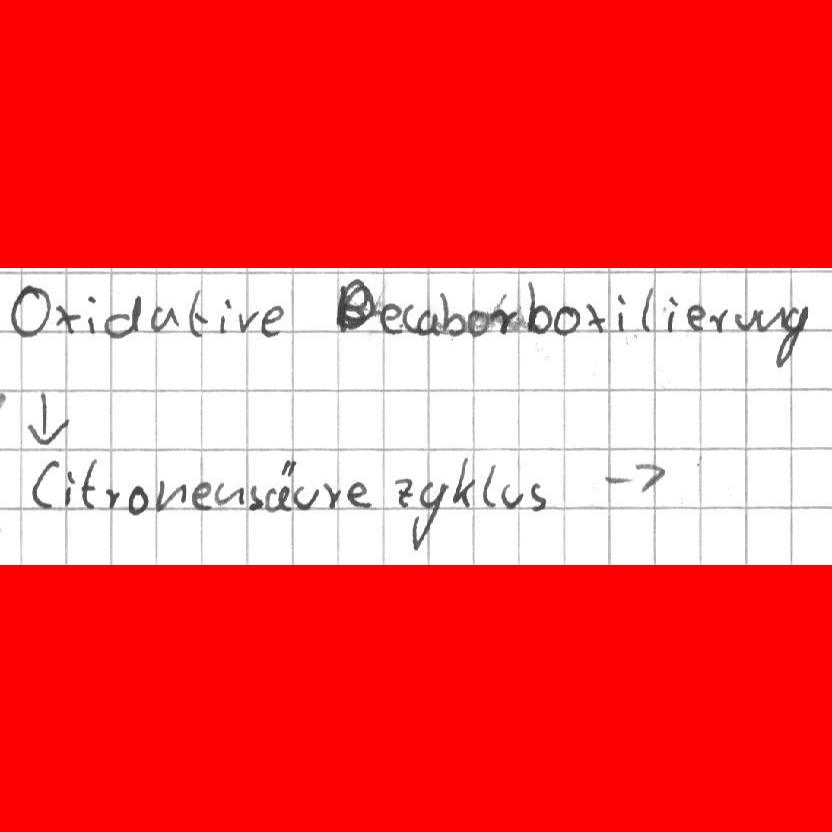 Oxidative Decaborboxilierung
↓
Citronensäurezyklus ->